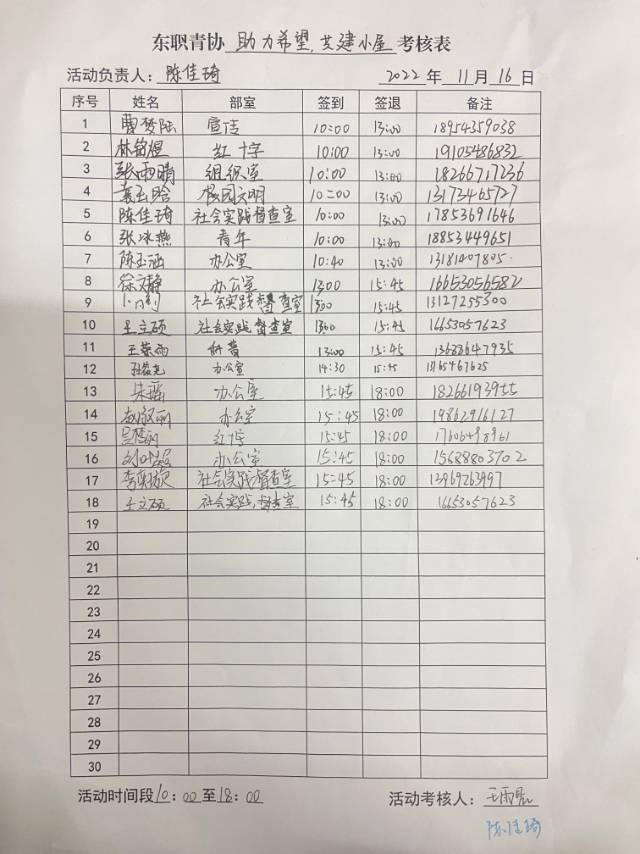 东职青协 助力希望,共建小屋 考核表
活动负责人: 陈佳琦 2022 年 11 月 16 日
序号 姓名 部室 签到 签退 备注
1 曹梦陆 宣传 10:00 13:00 18954359038
2 林铭煜 红十字 10:00 13:00 19105486832
3 张雨晴 组织室 10:00 13:00 18266717236
4 袁玉晗 校园文明 10:00 13:00 13173465727
5 陈佳琦 社会实践督查室 10:00 13:00 17853691646
6 张冰燕 青年 10:00 13:00 18853449651
7 陈玉涵 办公室 10:40 13:00 13181407805
8 徐文静 办公室 13:00 15:45 16653056582
9 社会实践督查室 13:00 15:45 13127255300
10 王立硕 社会实践督查室 13:00 15:45 16653057623
11 王荣雨 13:00 15:45 13688647935
12 办公室 14:30 15:45 13165467625
13 朱瑶 办公室 15:45 18:00
14 赵淑丽 办公室 15:45 18:00 19862916127
15 15:45 18:00
16 办公室 15:45 18:00 15688803702
17 社会实践督查室 15:45 18:00 13969263997
18 王立硕 社会实践督查室 15:45 18:00 16653057623
19
20
21
22
23
24
25
26
27
28
29
30
活动时间段10:00至18:00 活动考核人: 王雨
陈佳琦